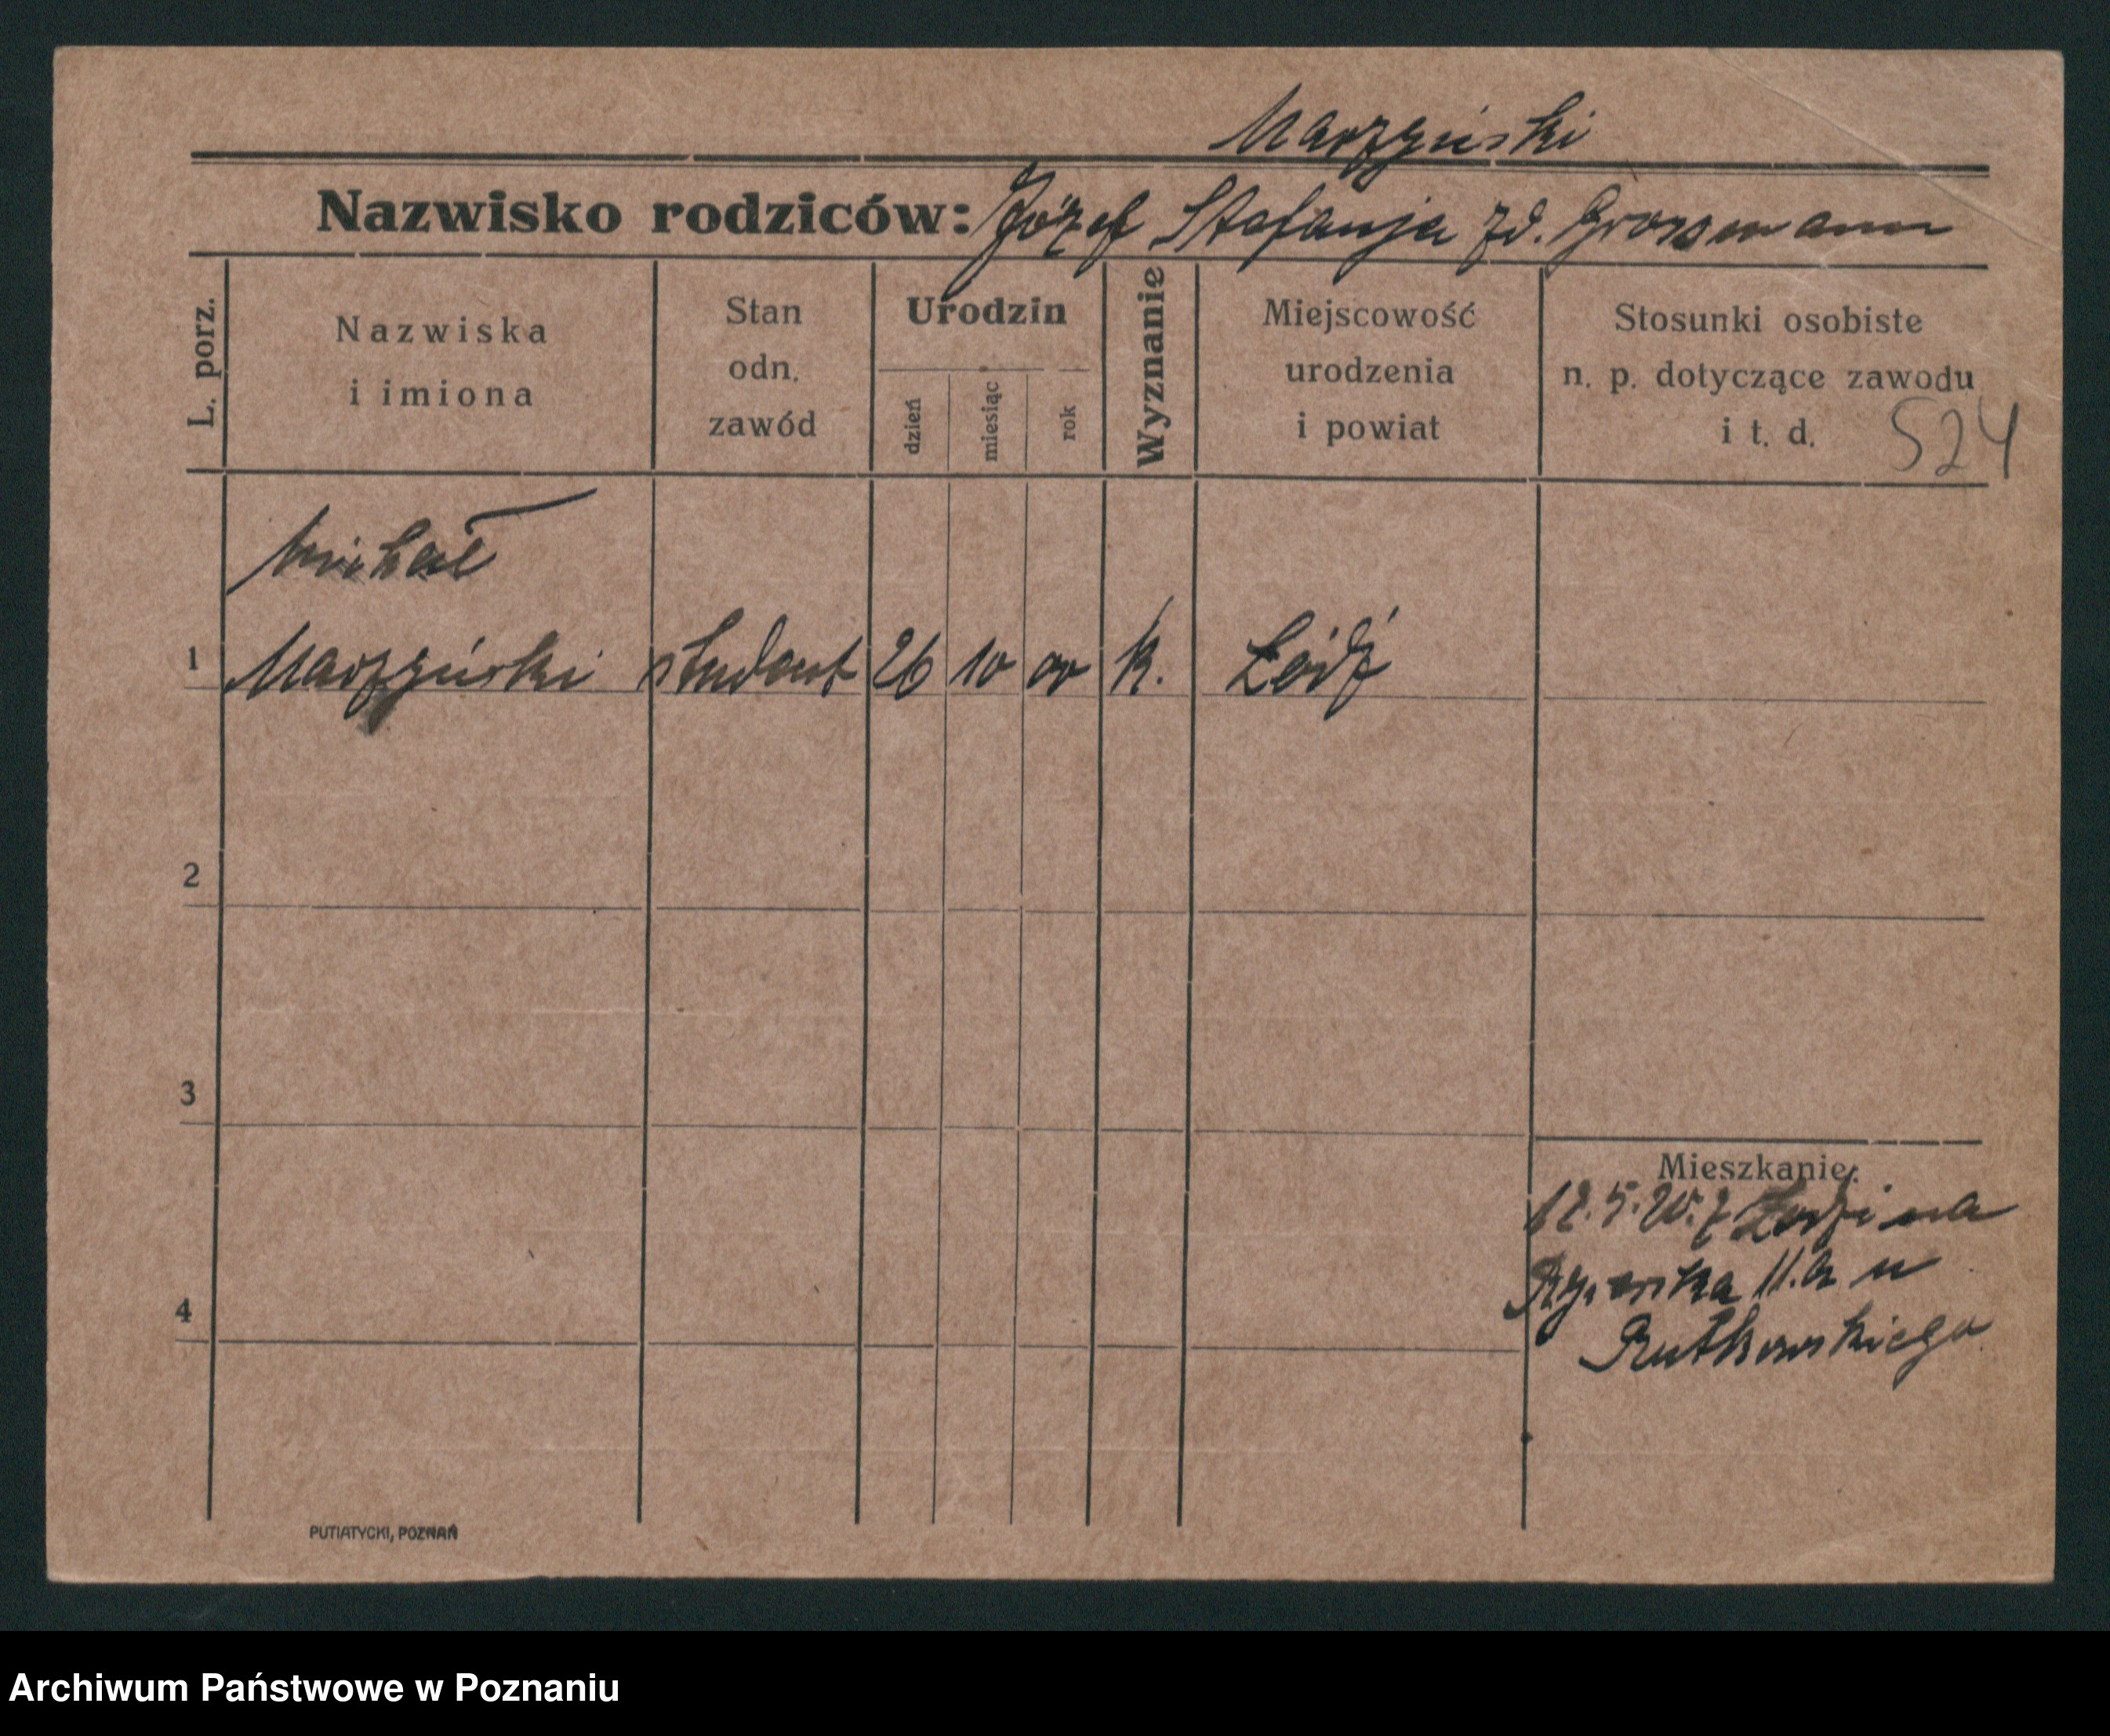 Marzyński
Nazwisko rodziców: Józef Stefanja zd. Grossmann
L. porz.
Nazwiska
i imiona
Stan
odn.
zawód
Urodzin
dzień
miesiąc
rok
Wyznanie
Miejscowość
urodzenia
i powiat
Stosunki osobiste
n. p. dotyczące zawodu
i t. d.
524
Michał
1 Marzyński student 26 10 00 k. Łódź
2
3
4
Mieszkanie:
12.5.20. z Łodzi na
11.a u
Rutkowskiego
PUTIATYCKI, POZNAŃ
Archiwum Państwowe w Poznaniu